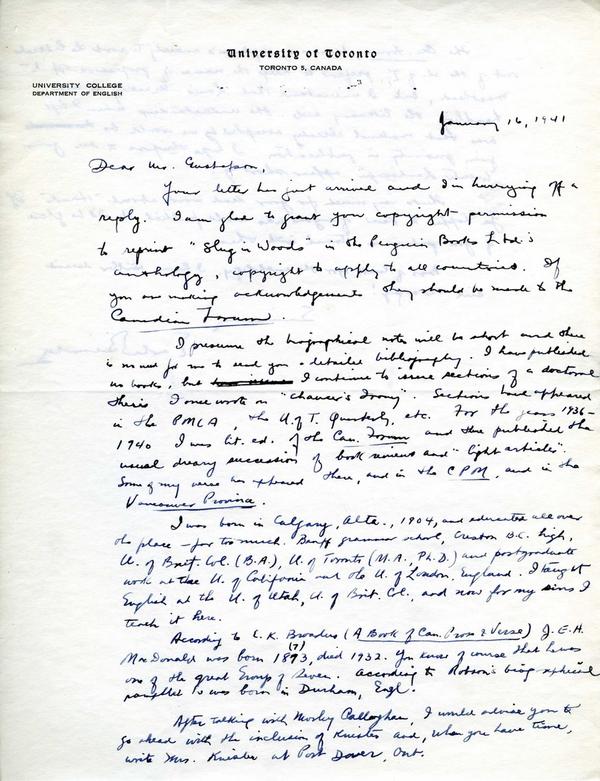 University of Toronto
TORONTO 5, CANADA
UNIVERSITY COLLEGE
DEPARTMENT OF ENGLISH
January 16, 1941
Dear Mr. Gustafson,
Your letter has just arrived and I'm hurrying off a
reply. I am glad to grant you copyright permission
to reprint "Slug in Woods" in the Penguin Books Ltd's
anthology, copyright to apply to all countries. If
you are making acknowledgements they should be made to the
Canadian Forum.
I presume the biographical note will be short and there
is no need for me to send you a detailed bibliography. I have published
no books, but I continue to issue sections of a doctoral
thesis I once wrote on "Chaucer's Irony". Sections have appeared
in the PMLA, the U. of T. Quarterly, etc. For the years 1936-
1940 I was lit. ed. of the Can. Forum and there published the
usual dreary succession of book reviews and "light articles".
Some of my verse has appeared there, and in the CPM, and in the
Vancouver Province.
I was born in Calgary, Alta., 1904, and educated all over
the place - far too much. Banff grammar school, Creston B.C. high,
U. of Brit. Col. (B.A.), U. of Toronto (M.A., Ph.D.) and postgraduate
work at the U. of California and the U. of London, England. I taught
English at the U. of Utah, U. of Brit. Col., and now for my sins I
teach it here.
According to E. K. Broadus (A Book of Can. Prose & Verse) J.E.H.
MacDonald was born 1873, (?) died 1932. You know of course that he was
one of the great Group of Seven. According to Robson's biographical
pamphlet he was born in Durham, Engl.
After talking with Morley Callaghan, I would advise you to
go ahead with the inclusion of Knister and, when you have time,
write Mrs. Knister at Port Dover, Ont.